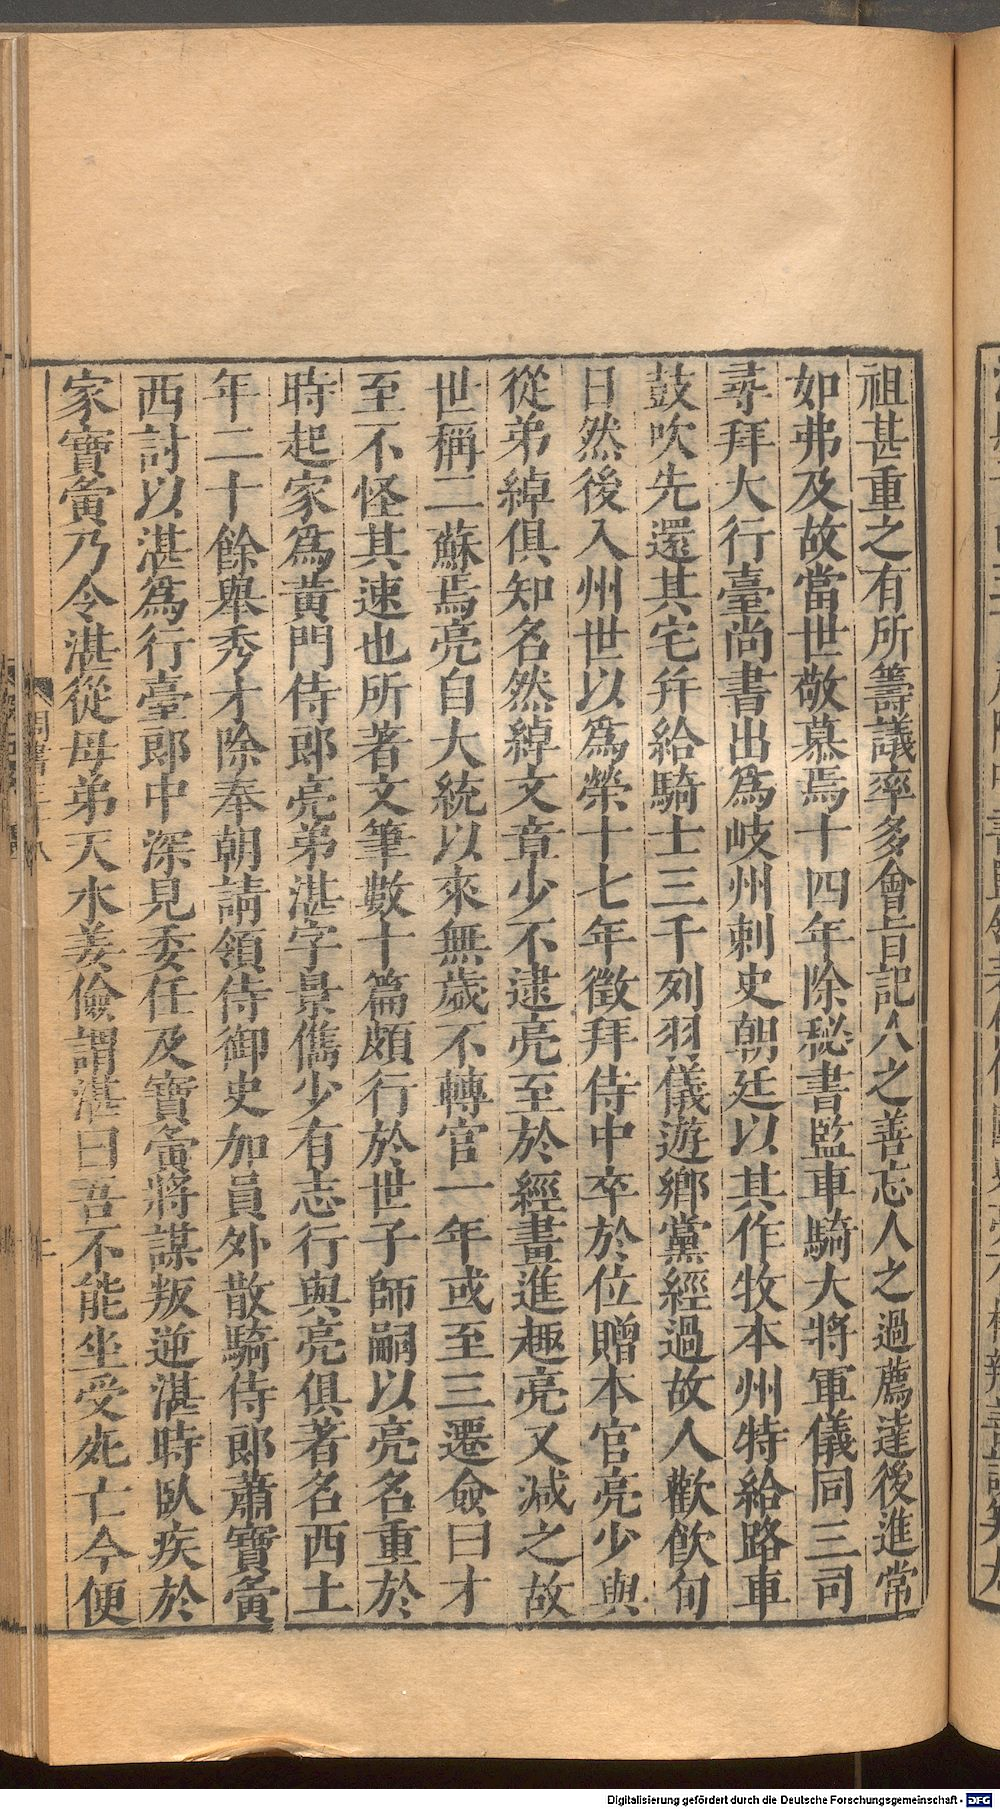 祖甚重之有所籌議率多會旨記人之善忘人之過薦達後進常
如弗及故當世敬慕焉十四年除秘書監車騎大將軍儀同三司
尋拜大行臺尚書出爲岐州刺史朝廷以其作牧本州特給路車
鼓吹先還其宅幷給騎士三千列羽儀遊鄉黨經過故人歡飲旬
日然後入州世以爲榮十七年徵拜侍中卒於位贈本官亮少與
從弟綽俱知名然綽文章少不逮亮至於經畫進趣亮又減之故
世稱二蘇焉亮自大統以來無歲不轉官一年或至三遷僉曰才
至不怪其速也所著文筆數十篇頗行於世子師嗣以亮名重於
時起家爲黃門侍郎亮弟湛字景儁少有志行與亮俱著名西土
年二十餘舉秀才除奉朝請領侍御史加員外散騎侍郎蕭寶夤
西討以湛爲行臺郎中深見委任及寶夤將謀叛逆湛時臥疾於
家寶夤乃令湛從母弟天水姜儉謂湛曰吾不能坐受死亡今便
Digitalisierung gefördert durch die Deutsche Forschungsgemeinschaft - DFG